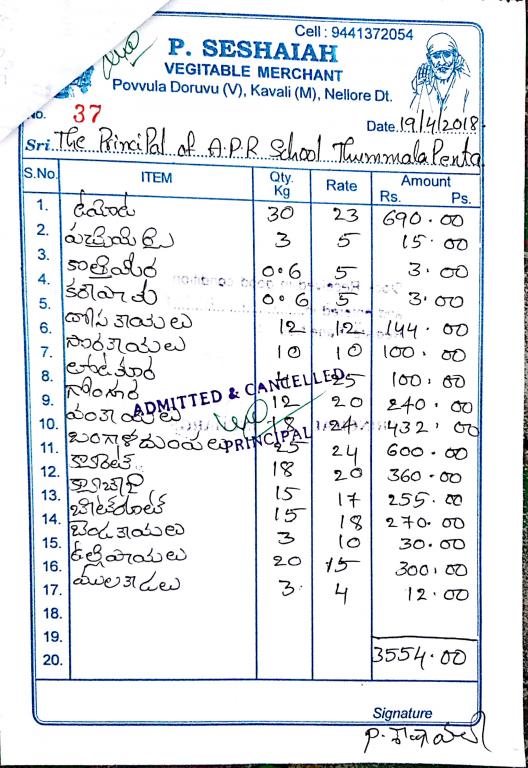 Cell : 9441372054
P. SESHAIAH
VEGITABLE MERCHANT
Povvula Doruvu (V), Kavali (M), Nellore Dt.
No. 37
Date 19/4/2018.
Sri. The Principal of A.P.R School Thummala Penta
S.No. ITEM Qty. Kg Rate Amount Rs. Ps.
1. టమోట 30 23 690.00
2. పచ్చిమిర్చి 3 5 15.00
3. కొత్తిమీర 0.6 5 3.00
4. కరివేపాకు 0.6 5 3.00
5. దోసకాయలు 12 12 144.00
6. సొరకాయలు 10 10 100.00
7. తోటకూర 25 100.00
8. గోంగూర 12 20 240.00
9. వంకాయలు 18 24 432.00
10. బంగాళదుంపలు 25 24 600.00
11. క్యారెట్ 18 20 360.00
12. క్యాబేజి 15 17 255.00
13. బీట్రూట్ 15 18 270.00
14. బెండకాయలు 3 10 30.00
15. ఉల్లిపాయలు 20 15 300.00
16. ములకాడలు 3 4 12.00
17.
18.
19.
20. 3554.00
ADMITTED & CANCELLED
PRINCIPAL
Signature